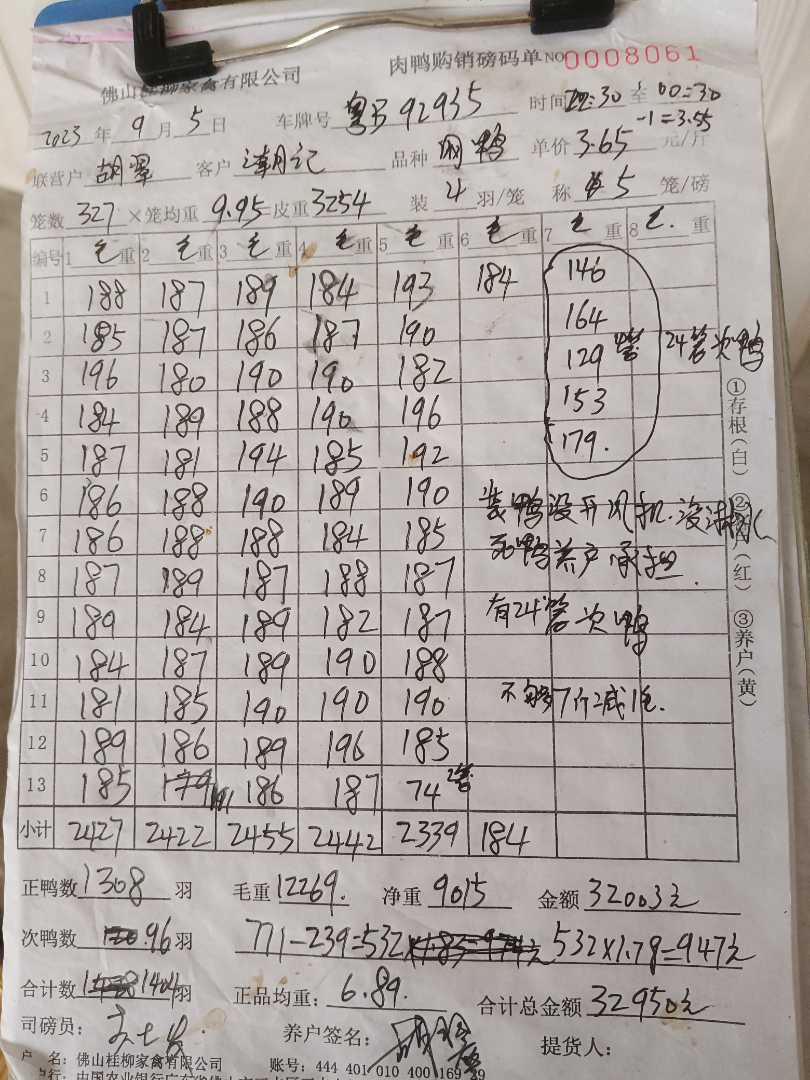 佛山桂柳家禽有限公司 肉鸭购销磅码单 NO 0008061
2023年9月5日 车牌号 92935 时间 22:30 至 00:30
-1=3.55
联营户 胡翠 客户 潮记 品种 网鸭 单价 3.65 元/斤
笼数 327 ×笼均重 9.95 皮重 3254 装 4 羽/笼 称 5 笼/磅
编号 1 毛重 2 毛重 3 毛重 4 毛重 5 毛重 6 毛重 7 毛重 8 毛重
1 188 187 189 184 193 184 146
2 185 187 186 187 190 164
3 196 180 190 190 182 129 24笼次鸭
4 184 189 188 190 196 153
5 187 181 194 185 192 179.
6 186 188 190 189 190 装鸭没开风机.没淋水
7 186 188 188 184 185 死鸭养户承担.
8 187 189 187 188 187
9 189 184 189 182 187 有24笼次鸭
10 184 187 189 190 188
11 181 185 190 190 190 不够7斤减1毛.
12 189 186 189 196 185
13 185 181 186 187 74 2笼
小计 2427 2422 2455 2442 2339 184
①存根(白) ②客户(红) ③养户(黄)
正鸭数 1308 羽 毛重 12269. 净重 9015 金额 32003元
次鸭数 96 羽 771-239=532 532×1.78=947元
合计数 1404 羽 正品均重: 6.89. 合计总金额 32950元
司磅员: 养户签名: 提货人:
户 名: 佛山桂柳家禽有限公司 账号: 444 401 010 400 169 29